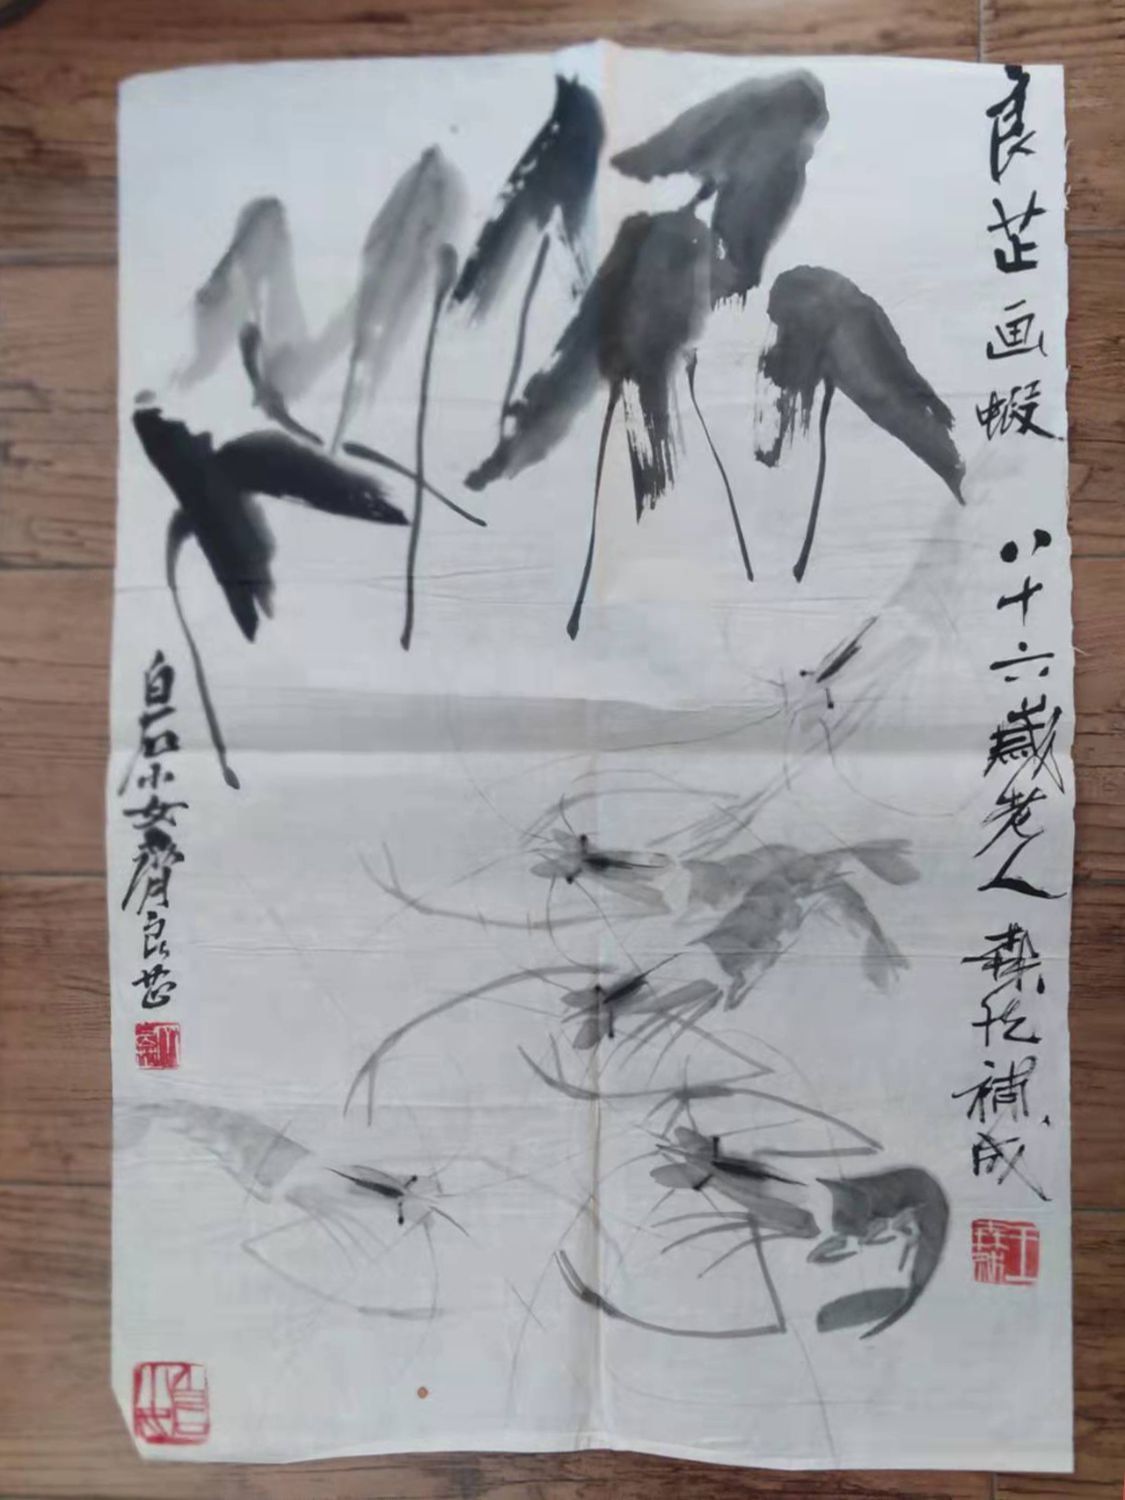 良芷画蝦 八十六歲老人 森然補成
白石小女齊良芷